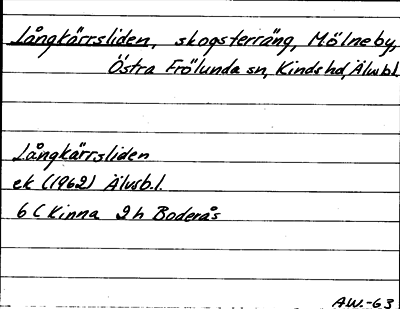 Långkärrsliden, skogsterräng, Mölneby,
Östra Frölunda sn, Kinds hd, Älvsb.l.
Långkärrsliden
ek (1962) Älvsb.l.
6 C Kinna 2 h Boderås
AW.-63